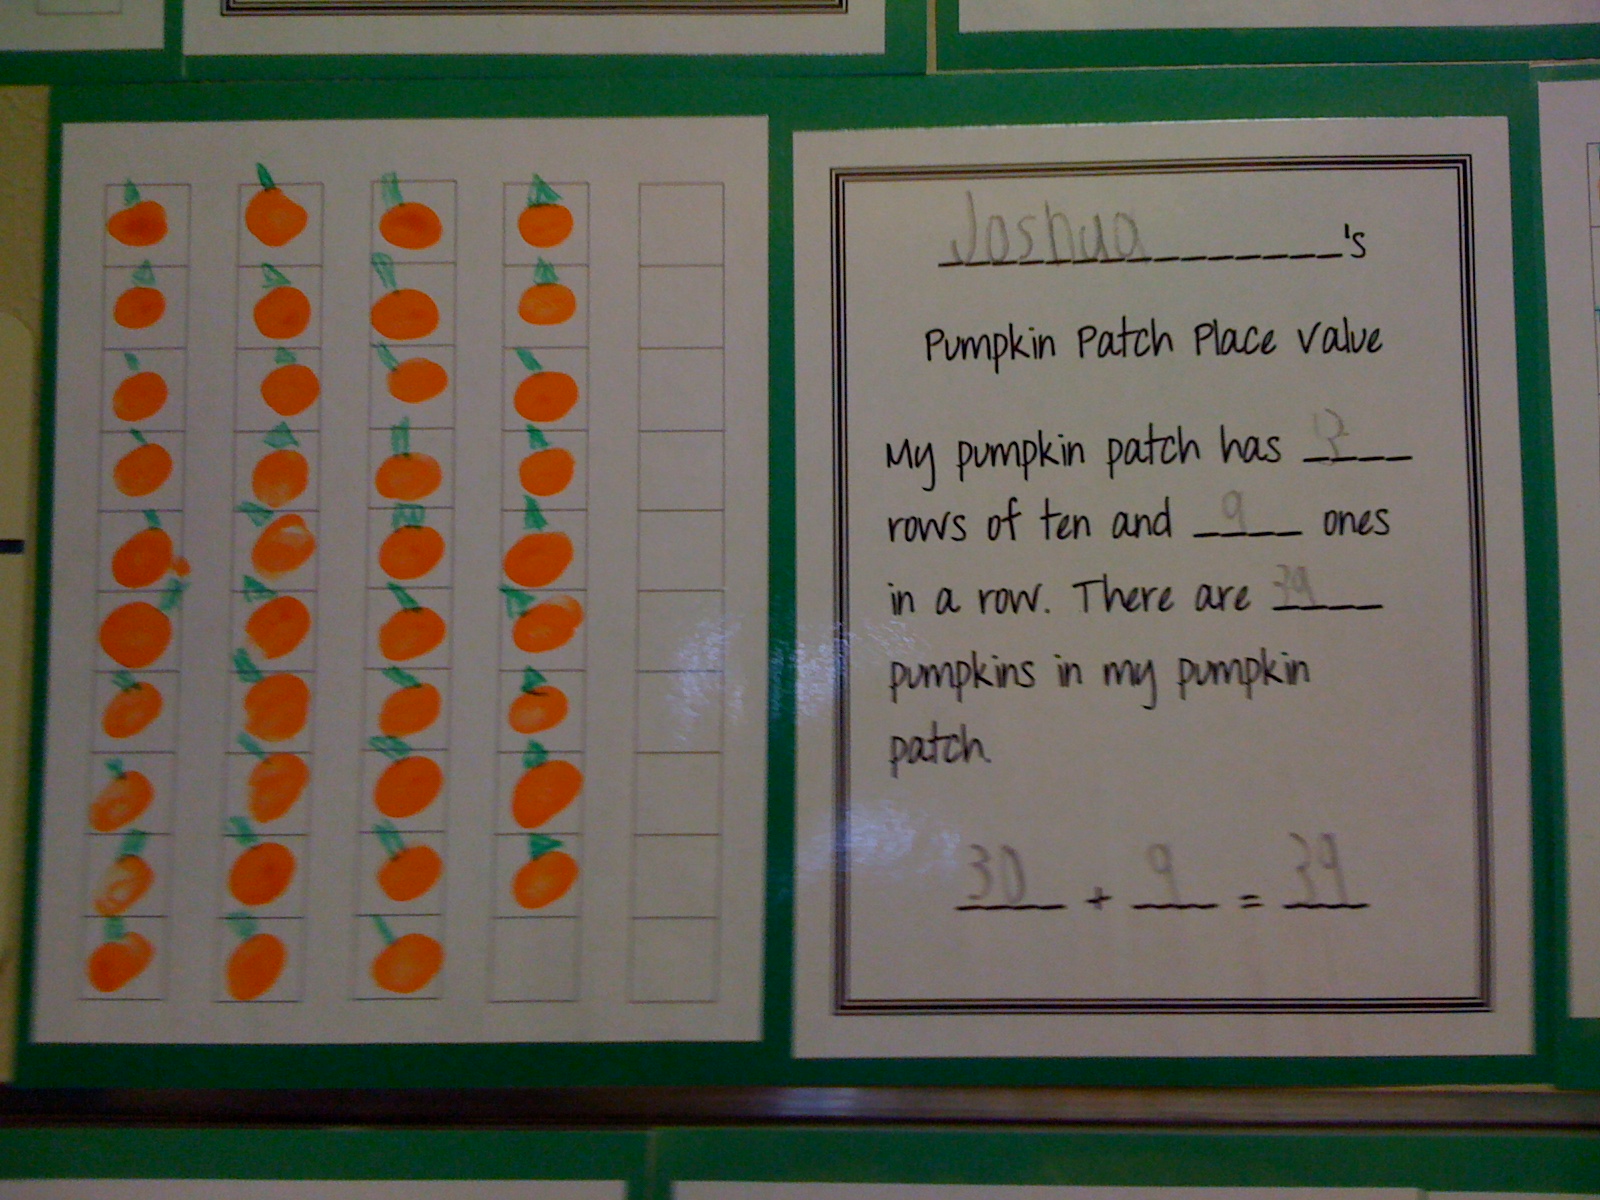 Joshua's
Pumpkin Patch Place Value
My pumpkin patch has 3
rows of ten and 9 ones
in a row. There are 39
pumpkins in my pumpkin
patch.
30 + 9 = 39